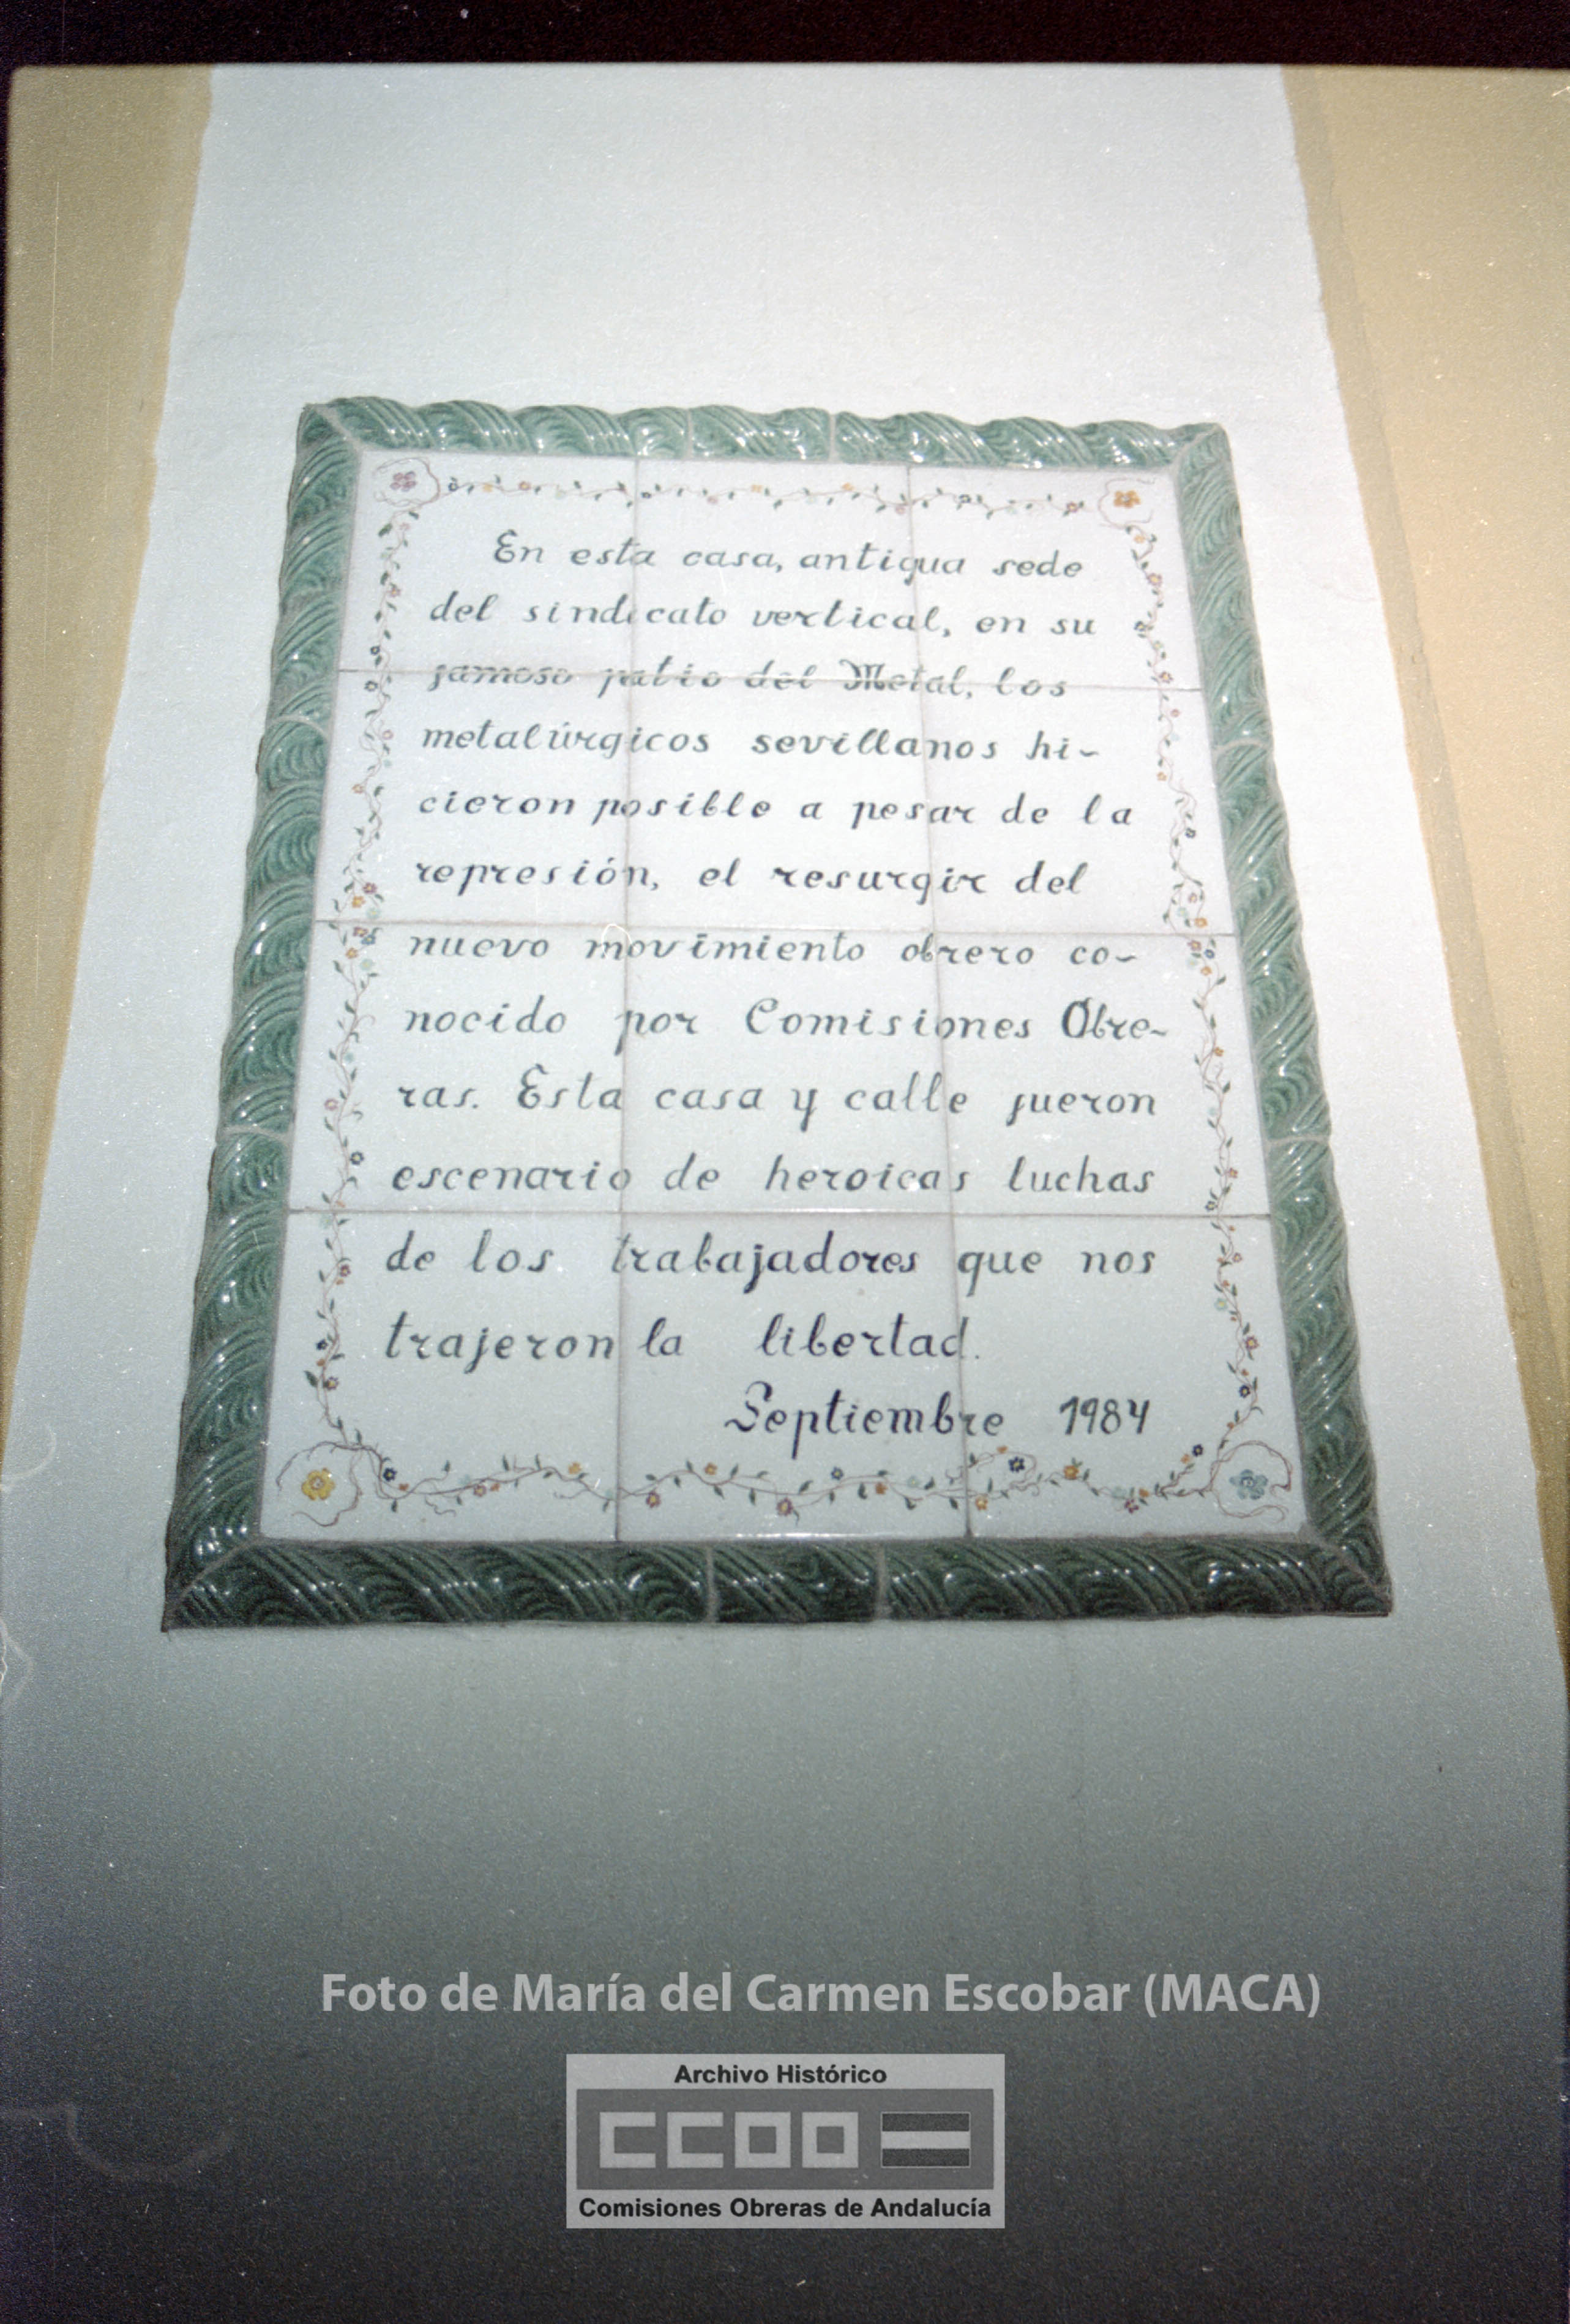 En esta casa, antigua sede
del sindicato vertical, en su
famoso patio del Metal, los
metalúrgicos sevillanos hi-
cieron posible a pesar de la
represión, el resurgir del
nuevo movimiento obrero co-
nocido por Comisiones Obre-
ras. Esta casa y calle fueron
escenario de heroicas luchas
de los trabajadores que nos
trajeron la libertad.
Septiembre 1984
Foto de María del Carmen Escobar (MACA)
Archivo Histórico
CCOO
Comisiones Obreras de Andalucía